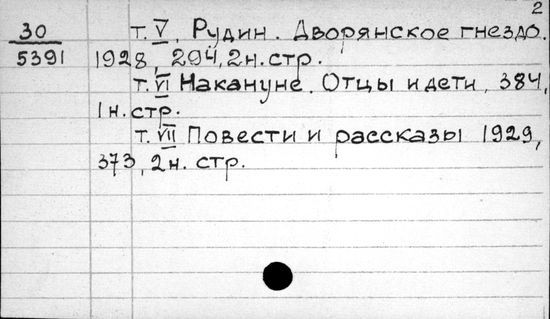 2
30 т. V. Рудин. Дворянское гнездо.
5391 1928, 294, 2 н. стр.
т. VI Накануне. Отцы и дети, 384,
1 н. стр.
т. VII Повести и рассказы 1929,
373, 2 н. стр.